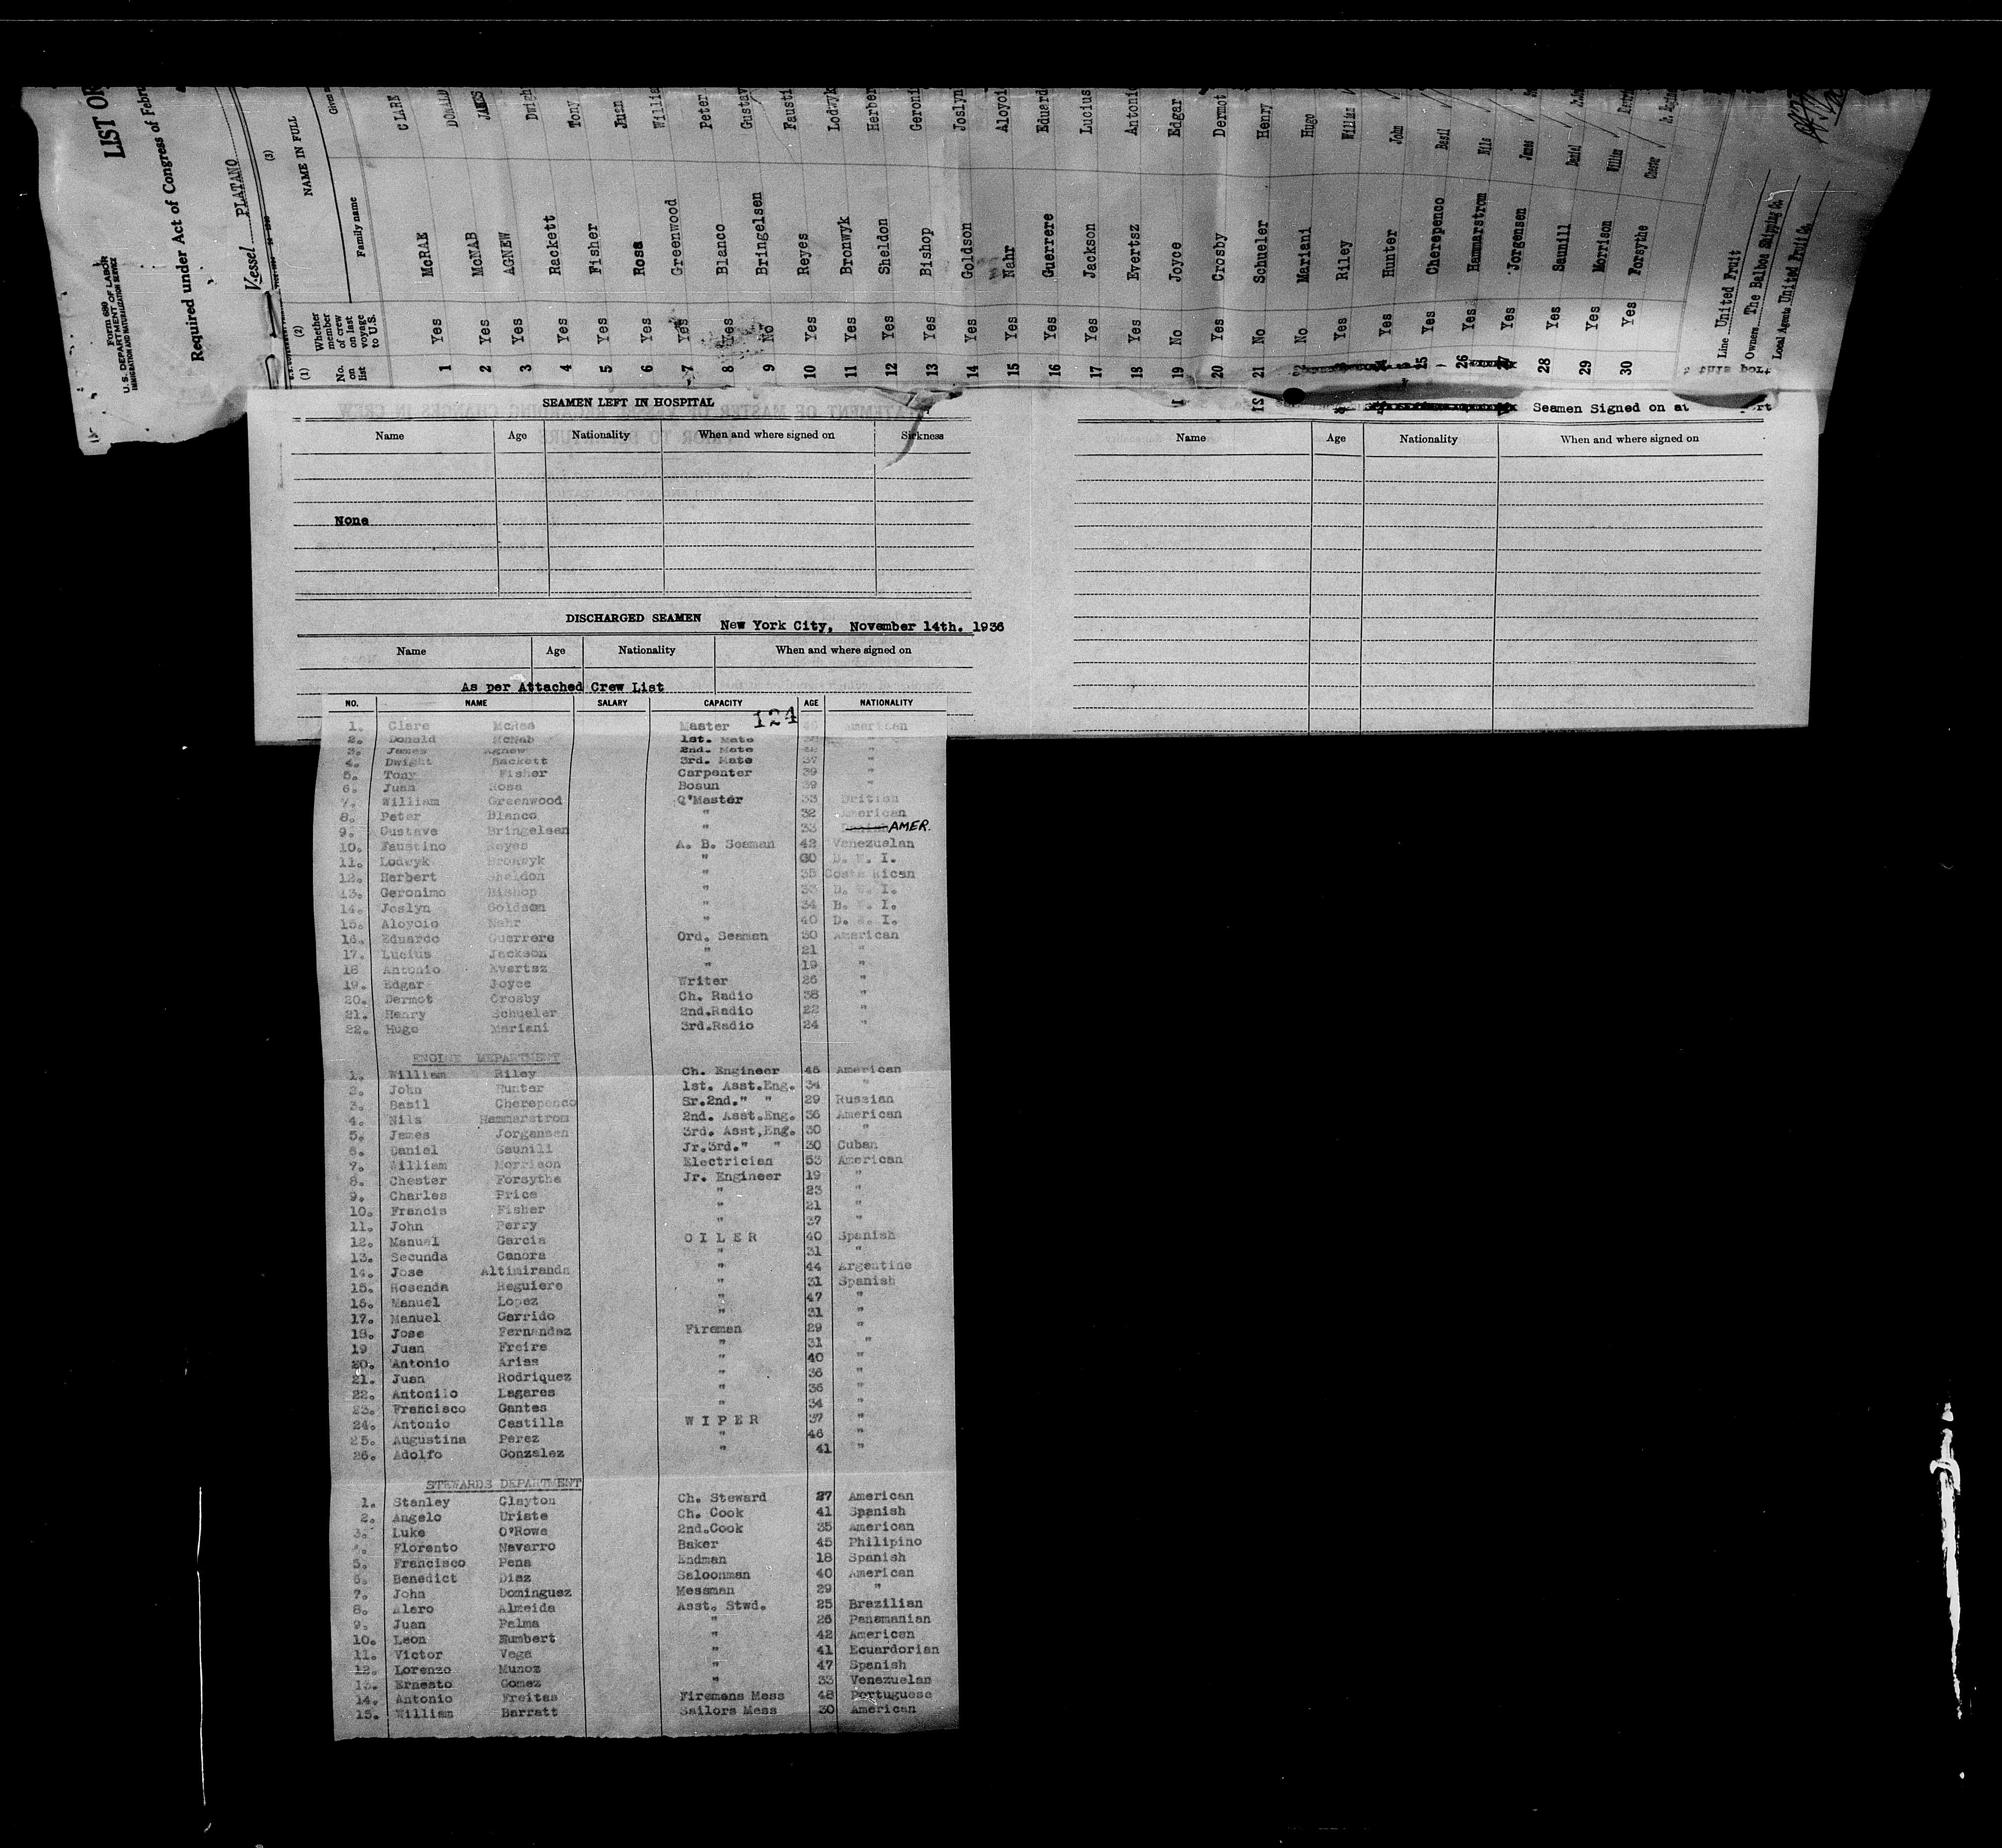 LIST OR
Required under Act of Congress of Febru
Form 680
U. S. DEPARTMENT OF LABOR
IMMIGRATION AND NATURALIZATION SERVICE
Vessel PLATANO
(1) (2) (3)
No. on list Whether member of crew on last voyage to U.S. NAME IN FULL
Family name Given n
1 Yes McRAE CLARE
2 Yes McNAB DONALD
3 Yes AGNEW JAMES
4 Yes Rackett Dwigh
5 Yes Fisher Tony
6 Yes Rosa Juan
7 Yes Greenwood Willia
8 Yes Blanco Peter
9 No Bringelsen Gustav
10 Yes Reyes Fausti
11 Yes Bronwyk Lodwyk
12 Yes Sheldon Herber
13 Yes Bishop Geroni
14 Yes Goldson Joslyn
15 Yes Nahr Aloyoi
16 Yes Guerrere Eduard
17 Yes Jackson Lucius
18 Yes Evertsz Antonio
19 No Joyce Edgar
20 Yes Crosby Dermot
21 No Schueler Henry
No Mariani Hugo
Yes Riley William
Yes Hunter John
Yes Cherepenco Basil
26 Yes Hammarstrom Nils
Yes Jorgensen James
28 Yes Saunill Daniel
29 Yes Morrison William
30 Yes Forsythe Chester
Line United Fruit
Owners The Balboa Shipping Co.
Local Agents United Fruit Co.
SEAMEN LEFT IN HOSPITAL
Name Age Nationality When and where signed on Sickness
None
DISCHARGED SEAMEN New York City, November 14th. 1936
Name Age Nationality When and where signed on
As per Attached Crew List
Seamen Signed on at
Name Age Nationality When and where signed on
NO. NAME SALARY CAPACITY AGE NATIONALITY
124
1. Clare McRae Master American
2. Donald McNab 1st. Mate "
3. James Agnew 2nd. Mate "
4. Dwight Rackett 3rd. Mate 37 "
5. Tony Fisher Carpenter 39 "
6. Juan Rosa Bosun 39 "
7. William Greenwood Q'Master 33 British
8. Peter Blanco " 32 American
9. Gustave Bringelsen " 33 AMER.
10. Faustino Reyes A. B. Seaman 42 Venezuelan
11. Lodwyk Bronwyk " 30 D. W. I.
12. Herbert Sheldon " 35 Costa Rican
13. Geronimo Bishop " 33 D. W. I.
14. Joslyn Goldson " 34 B. W. I.
15. Aloyoio Nahr " 40 D. W. I.
16. Eduardo Guerrere Ord. Seaman 30 American
17. Lucius Jackson " 21 "
18 Antonio Evertsz " 19 "
19. Edgar Joyce Writer 26 "
20. Dermot Crosby Ch. Radio 38 "
21. Henry Schueler 2nd.Radio 22 "
22. Hugo Mariani 3rd.Radio 24 "
ENGINE DEPARTMENT
1. William Riley Ch. Engineer 45 American
2. John Hunter 1st. Asst.Eng. 34 "
3. Basil Cherepenco Sr.2nd." " 29 Russian
4. Nils Hammarstrom 2nd. Asst.Eng. 36 American
5. James Jorgensen 3rd. Asst,Eng. 30 "
6. Daniel Saunill Jr.3rd." " 30 Cuban
7. William Morrison Electrician 53 American
8. Chester Forsythe Jr. Engineer 19 "
9. Charles Price " 23 "
10. Francis Fisher " 21 "
11. John Perry " 37 "
12. Manual Garcia O I L E R 40 Spanish
13. Secunda Canora " 31 "
14. Jose Altimiranda " 44 Argentine
15. Rosenda Reguiere " 31 Spanish
16. Manuel Lopez " 47 "
17. Manuel Garrido " 31 "
18. Jose Fernandez Firemen 29 "
19 Juan Freire " 31 "
20. Antonio Arias " 40 "
21. Juan Rodriquez " 36 "
22. Antonilo Lagares " 36 "
23. Francisco Gantes " 34 "
24. Antonio Castilla W I P E R 37 "
25. Augustina Perez " 46 "
26. Adolfo Gonzalez " 41 "
STEWARDS DEPARTMENT
1. Stanley Clayton Ch. Steward 27 American
2. Angelo Uriate Ch. Cook 41 Spanish
3. Luke O'Rowe 2nd.Cook 35 American
4. Florento Navarro Baker 45 Philipino
5. Francisco Pena Endman 18 Spanish
6. Benedict Diaz Saloonman 40 American
7. John Dominguez Messman 29 "
8. Alaro Almeida Asst. Stwd. 25 Brazilian
9. Juan Palma " 26 Panamanian
10. Leon Humbert " 42 American
11. Victor Vega " 41 Ecuardorian
12. Lorenzo Munoz " 47 Spanish
13. Ernesto Gomez " 33 Venezuelan
14. Antonio Freitas Firemens Mess 48 Portuguese
15. William Barratt Sailors Mess 30 American